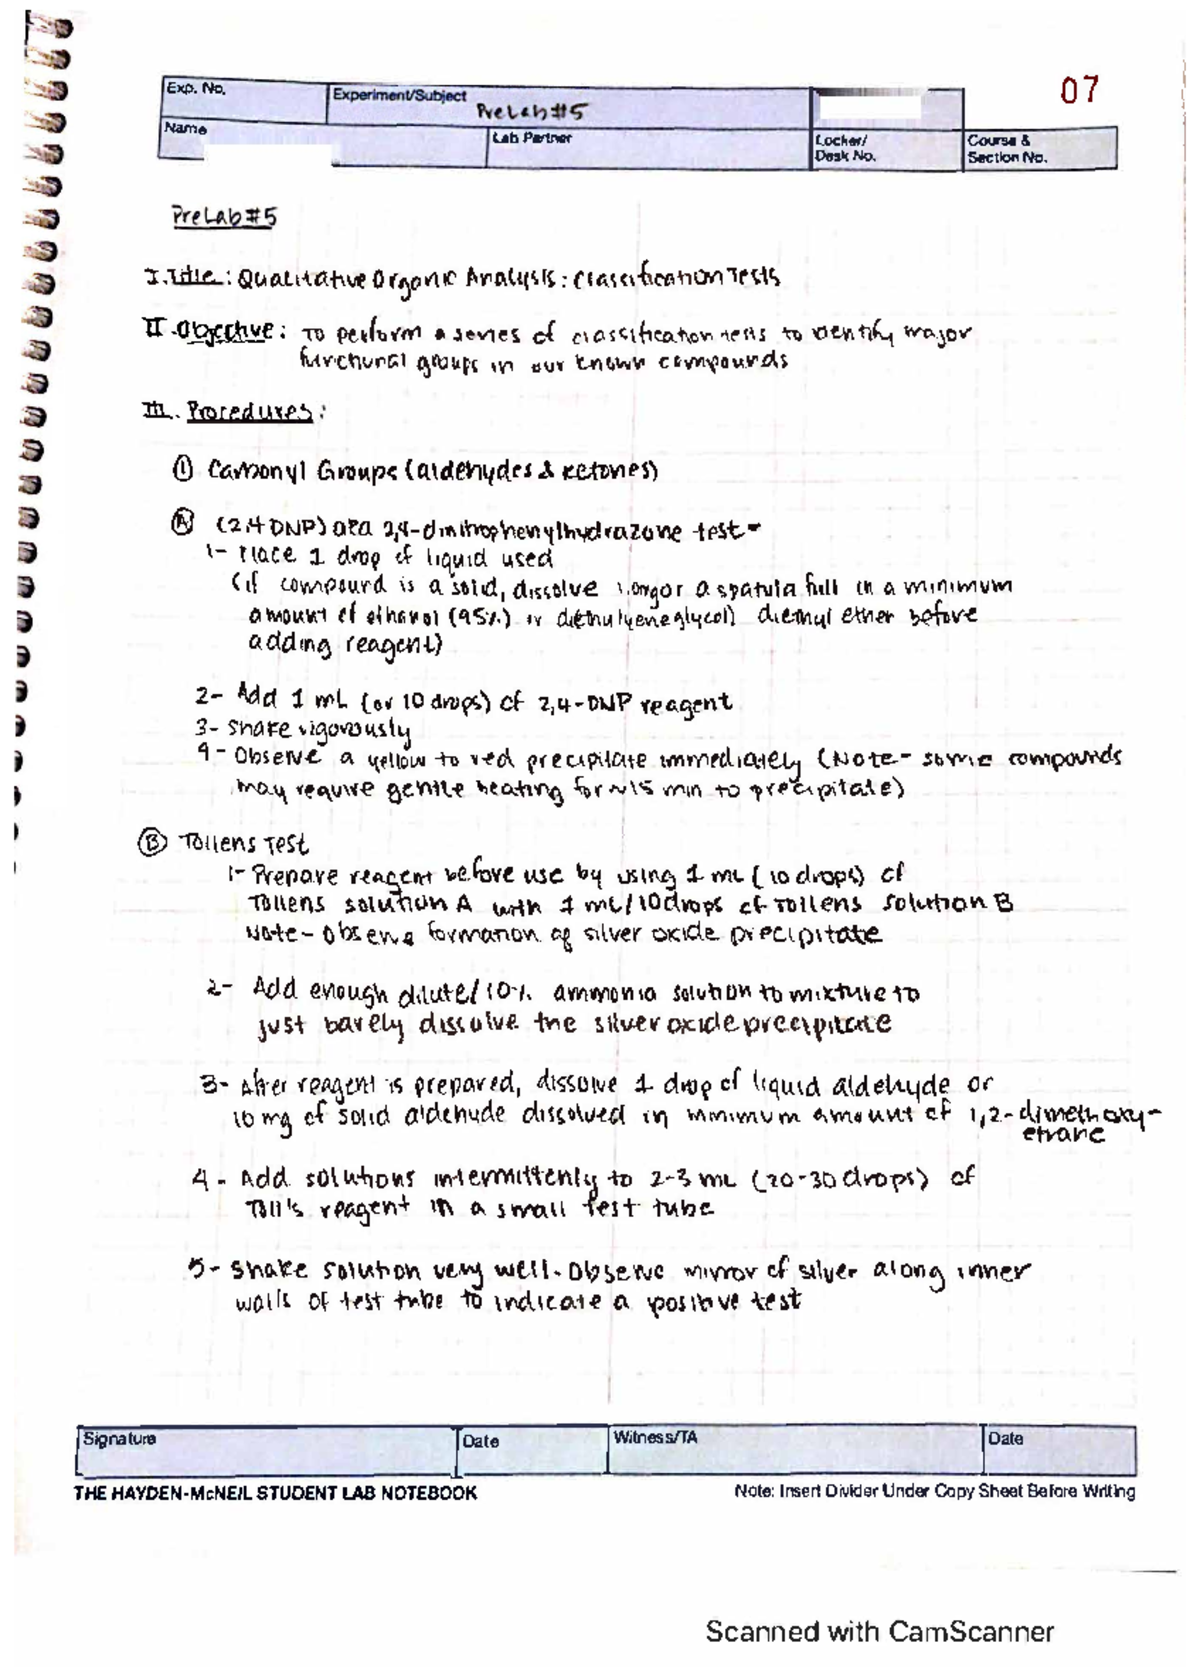 07
Exp. No.
Experiment/Subject
PreLab#5
Name
Lab Partner
Locker/
Desk No.
Course &
Section No.
PreLab#5
I. Title: Qualitative Organic Analysis: Classification Tests
II. Objective: To perform a series of classification tests to identify major
functional groups in our known compounds
III. Procedures:
① Carbonyl Groups (aldehydes & ketones)
Ⓐ (2,4 DNP) aka 2,4-dinitrophenylhydrazone test-
1- Place 1 drop of liquid used
(if compound is a solid, dissolve a spatula full in a minimum
amount of ethanol (95%) or diethylyeneglycol) diethyl ether before
adding reagent)
2- Add 1 mL (or 10 drops) of 2,4-DNP reagent
3- Shake vigorously
4- Observe a yellow to red precipitate immediately (Note- some compounds
may require gentle heating for ~15 min to precipitate)
Ⓑ Tollens Test
1- Prepare reagent before use by using 1 mL (10 drops) of
Tollens solution A with 1 mL/10drops of Tollens solution B
Note- Observe formation of silver oxide precipitate
2- Add enough dilute/10% ammonia solution to mixture to
just barely dissolve the silver oxide precipitate
3- After reagent is prepared, dissolve 1 drop of liquid aldehyde or
10 mg of solid aldehyde dissolved in minimum amount of 1,2-dimethoxy-
etrane
4- Add solutions intermittenly to 2-3 mL (20-30 drops) of
Toll's reagent in a small test tube
5- Shake solution very well. Observe mirror of silver along inner
walls of test tube to indicate a positive test
Signature
Date
Witness/TA
Date
THE HAYDEN-McNEIL STUDENT LAB NOTEBOOK
Note: Insert Divider Under Copy Sheet Before Writing
Scanned with CamScanner